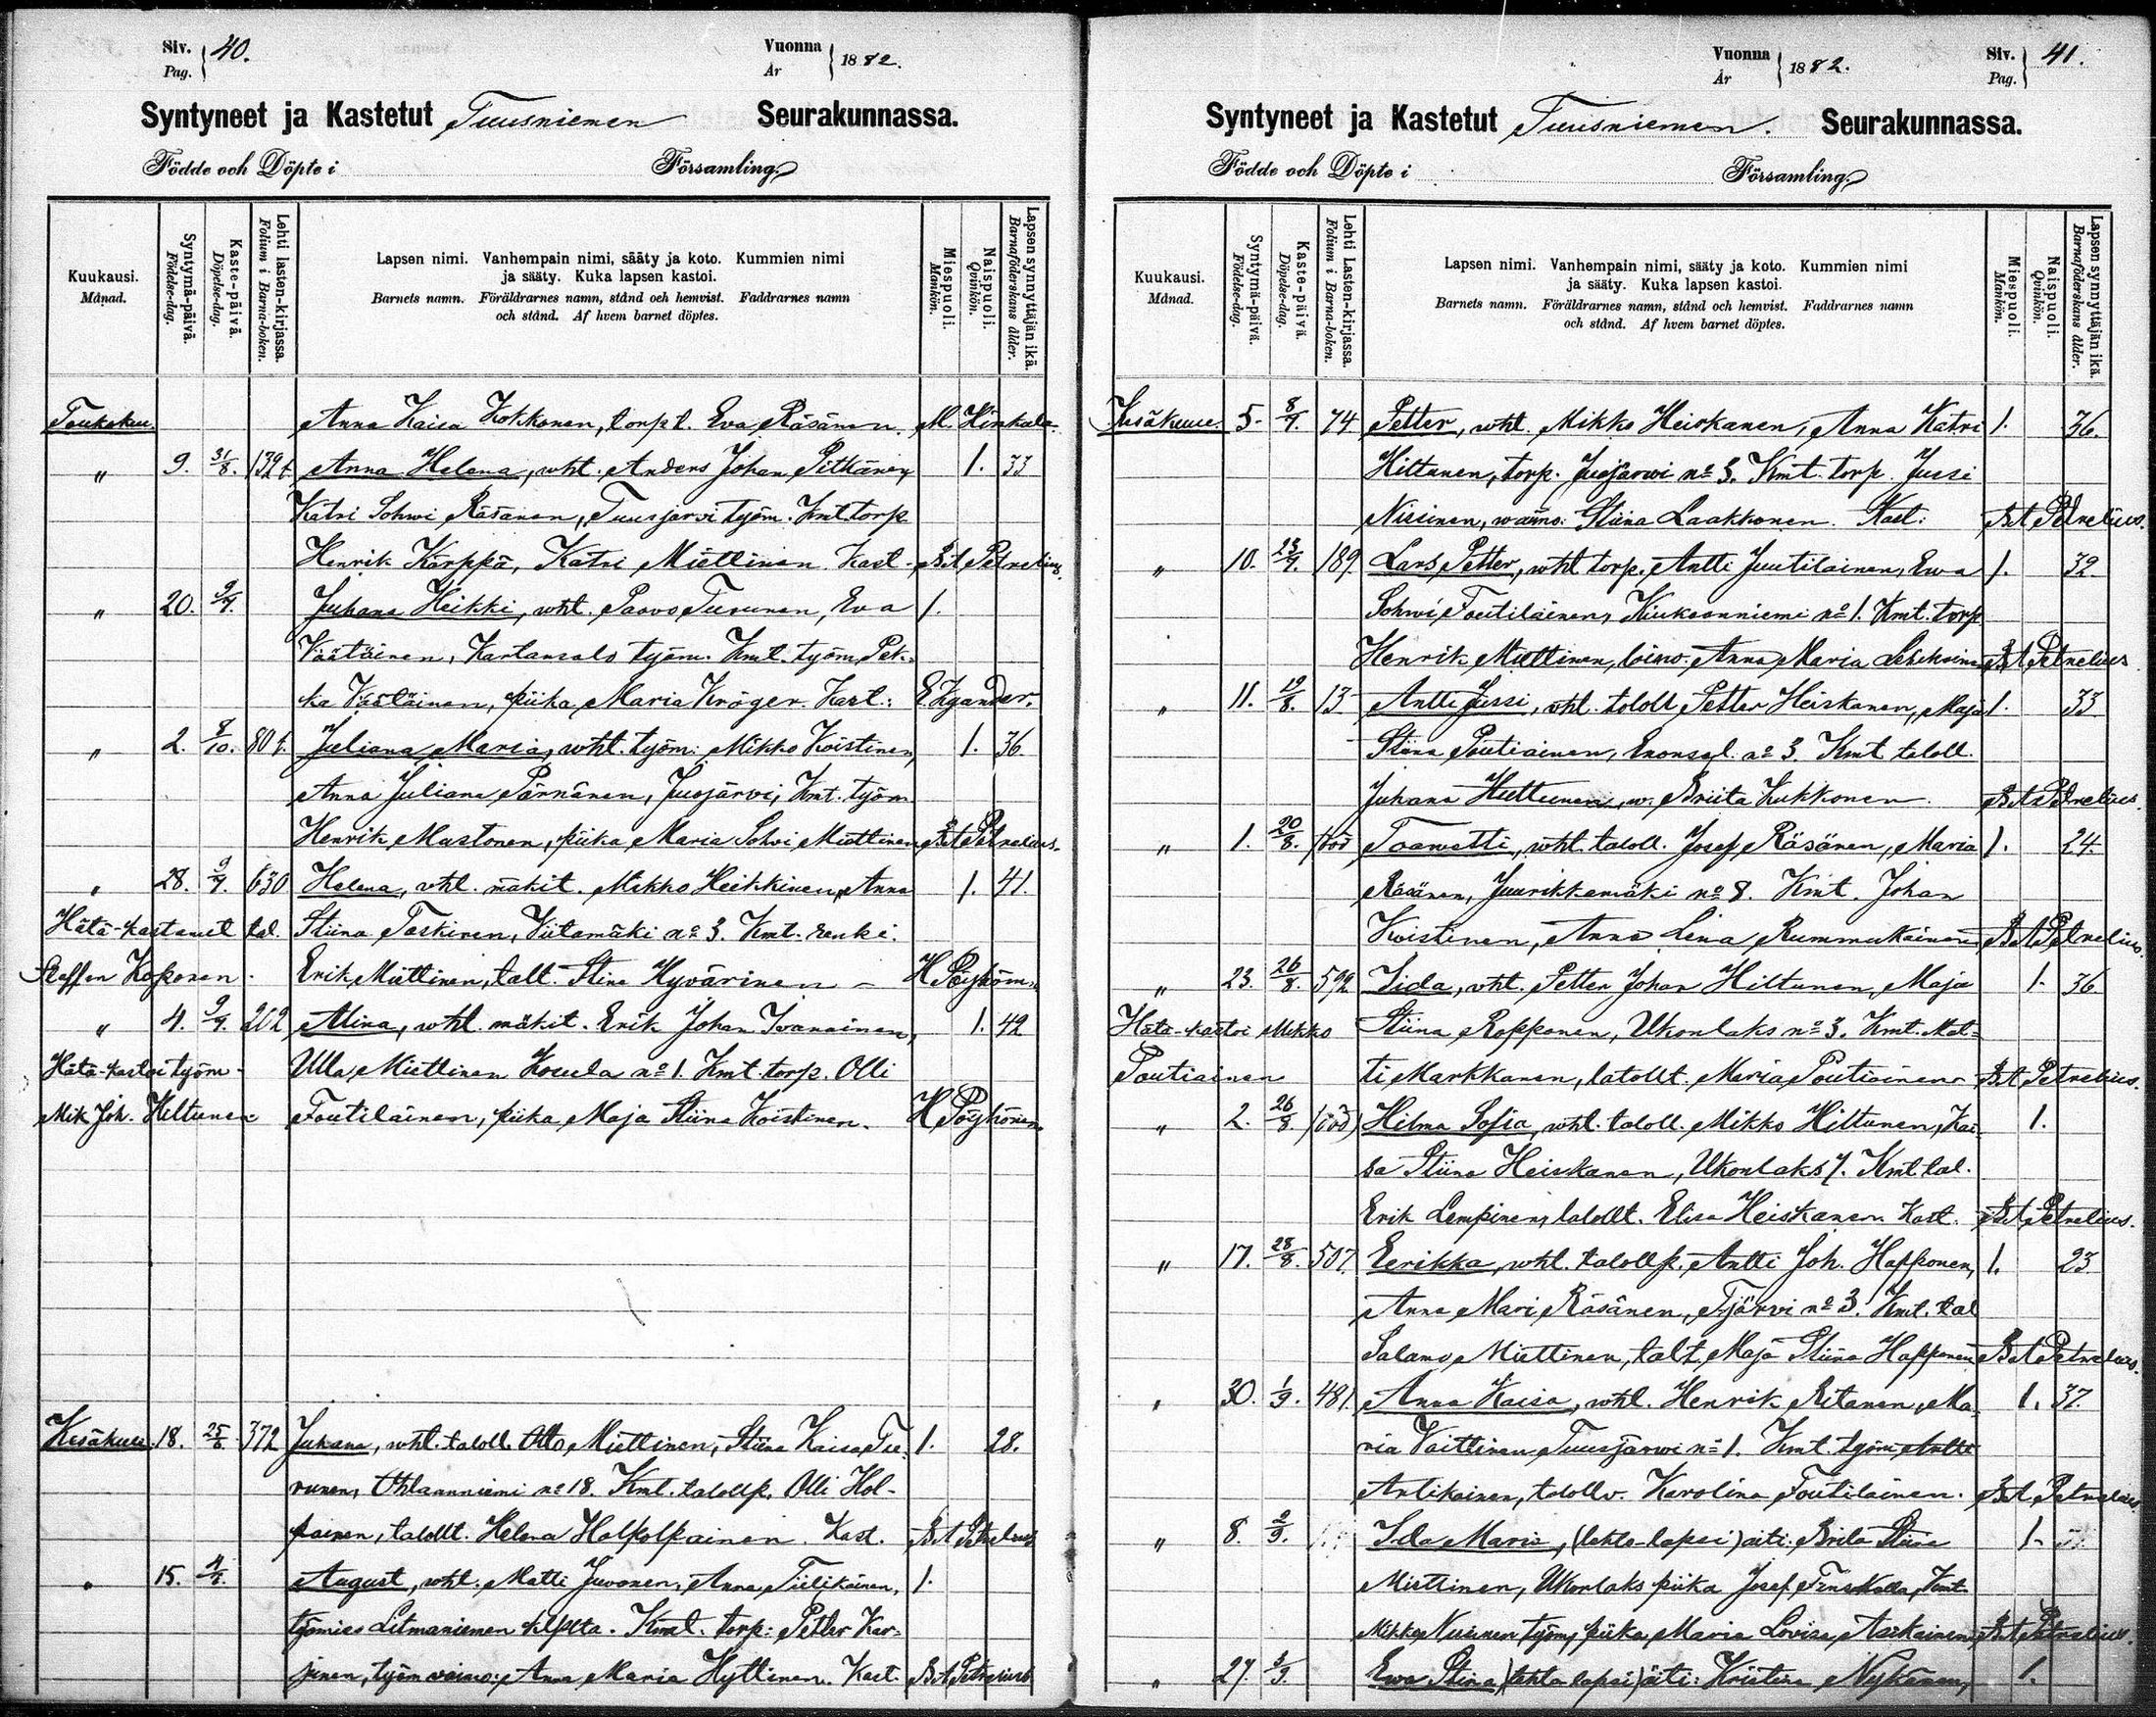 Siv. Pag. 40.
Vuonna År 1882.
Syntyneet ja Kastetut Tuusniemen Seurakunnassa.
Födde och Döpte i Församling
Kuukausi. Månad.
Syntymä-päivä. Födelse-dag.
Kaste-päivä. Döpelse-dag.
Lehti lasten-kirjassa. Folium i Barna-boken.
Lapsen nimi. Vanhempain nimi, sääty ja koto. Kummien nimi
ja sääty. Kuka lapsen kastoi.
Barnets namn. Föräldrarnes namn, stånd och hemvist. Faddrarnes namn
och stånd. Af hvem barnet döptes.
Miespuoli. Mankön.
Naispuoli. Qvinkön.
Lapsen synnyttäjän ikä. Barnaföderskans ålder.
Toukokuu. Anna Kaisa Kokkonen, torp t. Eva Räsänen. M. Hinkula.
" 9. 31/8. 132 t. Anna Helena, wht. Anders Johan Pitkänen, 1. 33
Katri Sohwi Räsänen, Tuusjärvi työm. Kmt. torp
Henrik Kärppä, Katri Miettinen. Kast. B A Petrelius.
" 20. 9/7. Juhana Heikki, wht. Paavo Turunen, Eva 1.
Väätäinen, Kartansalo työm. Kmt. työm. Pek-
ka Väätäinen, piika Maria Kröger. Kast.: E. Kyander.
" 2. 8/10. 80 t. Juliana Maria, wht. työm. Mikko Koistinen, 1. 36.
Anna Juliana Pärnänen, Juojärvi, Kmt. työm
Henrik Mustonen, piika Maria Sohvi Miettinen B A Petrelius.
" 28. 9/7. 630 Helena, vht. mäkit. Mikko Heikkinen, Anna 1. 41.
Hätä-kastanut tal. Stiina Taskinen, Viitamäki no 3. Kmt. renki.
Staffan Koponen. Erik Miettinen, talt. Stina Hyvärinen - H Pöyhönen
" 4. 9/7. 202 Alina, wht. mäkit. Erik Johan Ivanainen, 1. 42
Hätä-kastoi työm- Ulla Miettinen Kosula no 1. Kmt. torp. Olli
Mik Joh. Hiltunen Toutilainen, piika Maja Stiina Koistinen. H Pöyhönen
Kesäkuu. 18. 25/6. 372 Juhana, wht. taloll. Otto Miettinen, Stiina Kaisa Tu- 1. 28.
runen, Ohtaanniemi no 18. Kmt. talollp. Olli Hol-
painen, talollt. Helena Holpolpainen. Kast. B A Petrelius
" 15. 4/7. August, wht. Matti Juvonen, Anna Tiilikainen, 1.
työmies Litmaniemen . Kmt. torp: Petter Kar-
jinen, työm vaimo: Anna Maria Hyttinen. Kast. B A Petrelius
Vuonna År 1882.
Siv. Pag. 41.
Syntyneet ja Kastetut Tuusniemen. Seurakunnassa.
Födde och Döpte i Församling
Kuukausi. Månad.
Syntymä-päivä. Födelse-dag.
Kaste-päivä. Döpelse-dag.
Lehti Lasten-kirjassa. Folium i Barna-boken.
Lapsen nimi. Vanhempain nimi, sääty ja koto. Kummien nimi
ja sääty. Kuka lapsen kastoi.
Barnets namn. Föräldrarnes namn, stånd och hemvist. Faddrarnes namn
och stånd. Af hvem barnet döptes.
Miespuoli. Mankön.
Naispuoli. Qvinkön.
Lapsen synnyttäjän ikä. Barnaföderskans ålder.
Kesäkuu. 5. 8/7. 74 Petter, wht. Mikko Heiskanen, Anna Katri 1. 36.
Hiltunen, torp. Juojärwi no 3. Kmt. torp. Jussi
Nissinen, waimo: Stiina Laakkonen. Kast: B A Petrelius.
" 10. 23/7. 189 Lars Petter, wht torp. Antti Juutilainen, Ewa 1. 32.
Sohwi Toutilainen, Kiukoonniemi no 1. Kmt. torp
Henrik Miettinen, loisw. Anna Maria B A Petrelius.
" 11. 19/8. 13 Antti Jussi, vht. taloll Petter Heiskanen, Maja 1. 33
Stiina Poutiainen, Enonsal. no 3. Kmt taloll.
Juhana Huttunen, w. Briita Kukkonen. B A Petrelius.
" 1. 20/8. Taawetti, wht. taloll. Josef Räsänen, Maria 1. 24.
Räsänen, Juurikkamäki no 8. Kmt. Johan
Koistinen, Anna Lena Rummukainen B A Petrelius.
" 23. 26/8. 592 Iida, vht. Petter Johan Hiltunen, Maja 1. 36.
Hätä-kastoi Mikko Stiina Ropponen, Ukonlaks no 3. Kmt. Mat-
Poutiainen ti Markkanen, talollt. Maria Poutiainen B A Petrelius.
" 2. 26/8. Hilma Sofia, wht. taloll. Mikko Hiltunen, Kai- 1.
sa Stiina Heiskanen, Ukonlaks 7. Kmt. tal.
Erik Lempinen, talollt. Elisa Heiskanen. Kast. B A Petrelius.
" 17. 28/8. 507. Eerikka, wht. talollp. Antti Joh. Happonen, 1. 23
Anna Mari Räsänen, Tjärvi no 3. Kmt. tal
Salamo Miettinen, talt. Maja Stiina Happonen B A Petrelius.
" 30. 1/9. 481. Anna Kaisa, wht. Henrik Ritanen, Ma- 1. 37.
ria Voittinen Tuusjärwi no 1. Kmt. työm Antti
Antikainen, talollv. Karolina Toutilainen. B A Petrelius.
" 8. 2/9. Ida Maria, (lehto-lapsi) äiti: Brita Stiina 1.
Miettinen, Ukonlaks piika Josef , Kmt
Mikko Nissinen työm, piika Maria Lovisa Asikainen B A Petrelius.
" 27. 3/9. Ewa Stina (lehto lapsi) äiti: Kristina Nykänen, 1.